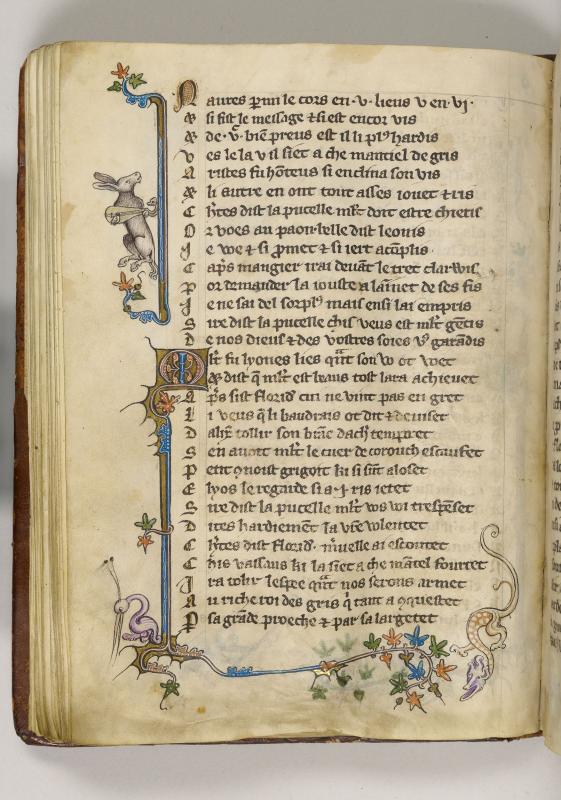 Naures parmi le cors en .v. lieus v en .vi.
& si fist le message & si est encor vis
& de bien preus est il li plus hardis
v es le la v il siet a che mantiel de gris
A ristes fu honteus si enclina son vis
& li autre en ont tout asses iouet & ris
C hertes dist la pucelle doit estre chieris
O r voes au paon belle dist leonis
I e we & si promet & si iert acomplis
C aprs mangier irai deuant le tret clarwis
P or demander la iouste a lainnet de ses fis
I e ne sai del sorplus mais ensi lai empris
S ire dist la pucelle chis veus est gentis
D e nos dieus & des vostres soies garandis
fu lyones lies quant son w ot voet
& dist est biaus tost lara achieuet
A pres sist Florid' cui ne vint pas en gret
L i veus li baudrais ot dit & deuiset
D tollir son branc dachier tempret
S en auoit le cuer de corouch escaufet
P etit grigoit ki si sunt aloset
E lyos le regarde si a .i. ris ietet
S ire dist la pucelle ws wi trespenset
D ites hardiement la volentet
C hertes dist Florid' meruelle ai escoutet
C his vassaus ki la siet a che mantel fourret
I ra tolir lespee quant nos serons armet
A u riche roi des gris qi tant a conquestet
P sa grande proeche & par sa largetet